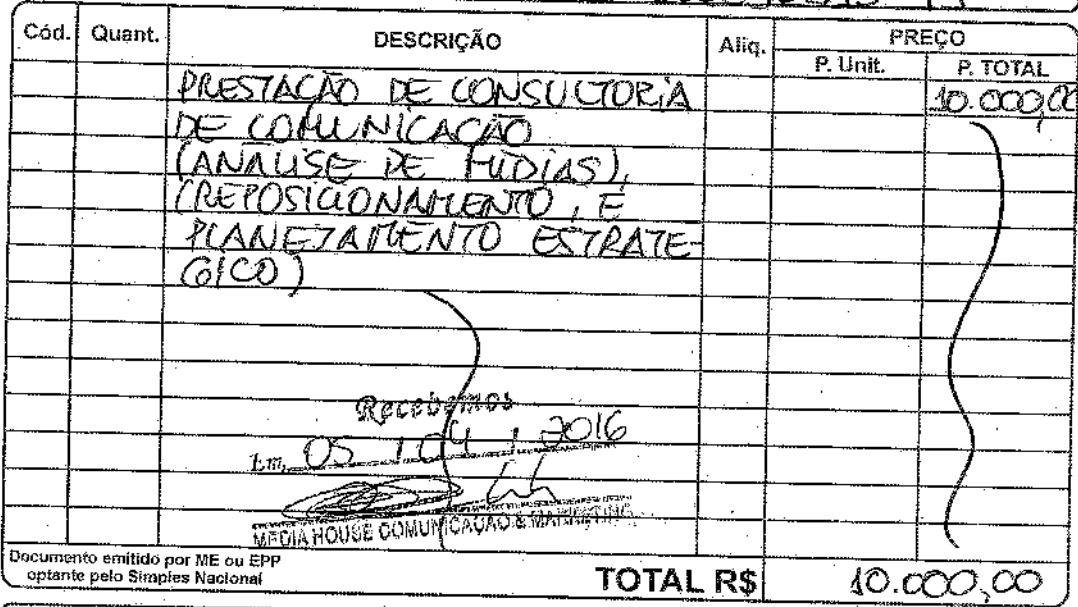 Cód. Quant. DESCRIÇÃO Aliq. PREÇO
P. Unit. P. TOTAL
PRESTAÇÃO DE CONSULTORIA 10.000,00
DE COMUNICAÇÃO
(ANÁLISE DE MÍDIAS),
(REPOSICIONAMENTO, E
PLANEJAMENTO ESTRATE-
GICO)
Recebemos
Em, 05 / 04 / 2016
MEDIA HOUSE COMUNICAÇÃO & MARKETING
Documento emitido por ME ou EPP
optante pelo Simples Nacional
TOTAL R$ 10.000,00